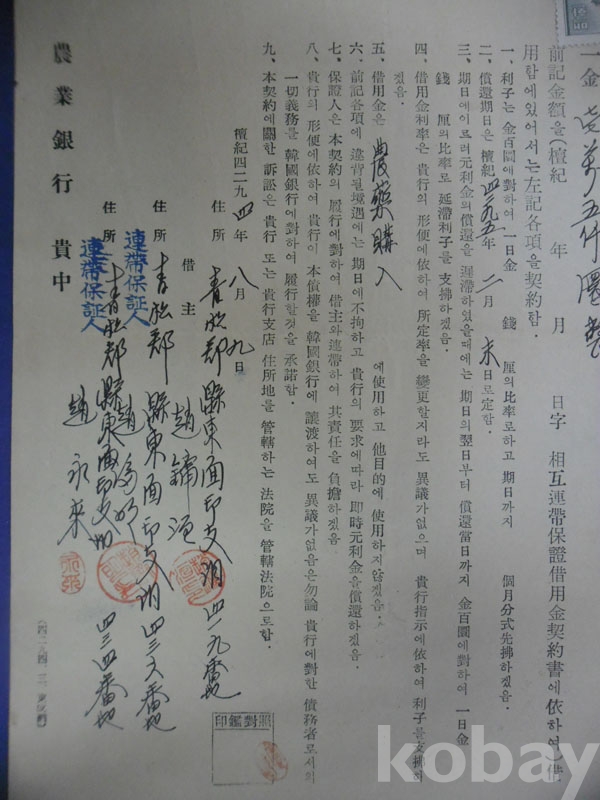 一金 壱萬五仟圜整
前記金額을(檀紀 年 月 日字 相互連帶保證借用金契約書에依하여)借
用함에있어서는左記各項을契約함.
一、利子는金百圜에對하여一日金 錢 厘의比率로하고期日까지 個月分式先拂하겠음.
二、償還期日은檀紀四二九五年二月末日로定함.
三、期日에이르러元利金의償還을遲滯하였을때에는期日의翌日부터償還當日까지金百圜에對하여一日金
錢 厘의比率로延滯利子를支拂하겠음.
四、借用金利率은貴行의形便에依하여所定率을變更할지라도異議가없으며貴行指示에依하여利子를支拂하
겠음.
五、借用金은 農藥購入 에使用하고他目的에使用하지않겠음.
六、前記各項에違背될境遇에는期日에不拘하고貴行의要求에따라即時元利金을償還하겠음.
七、保證人은本契約의履行에對하여借主와連帶하여其責任을負擔하겠음.
八、貴行의形便에依하여貴行이本債權을韓國銀行에讓渡하여도異議가없음은勿論貴行에對한債務者로서의
一切義務를韓國銀行에對하여履行할것을承諾함.
九、本契約에關한訴訟은貴行또는貴行支店住所地를管轄하는法院을管轄法院으로함.
檀紀四二九四年八月九日
住所 靑松郡縣東面印支洞四一九番地
借主 趙鏞
住所 靑松郡縣東面印支洞四三六番地
連帶保証人 趙
住所 靑松郡縣東面印支洞四三四番地
連帶保証人 趙永來
農業銀行 貴中
印鑑對照
kobay